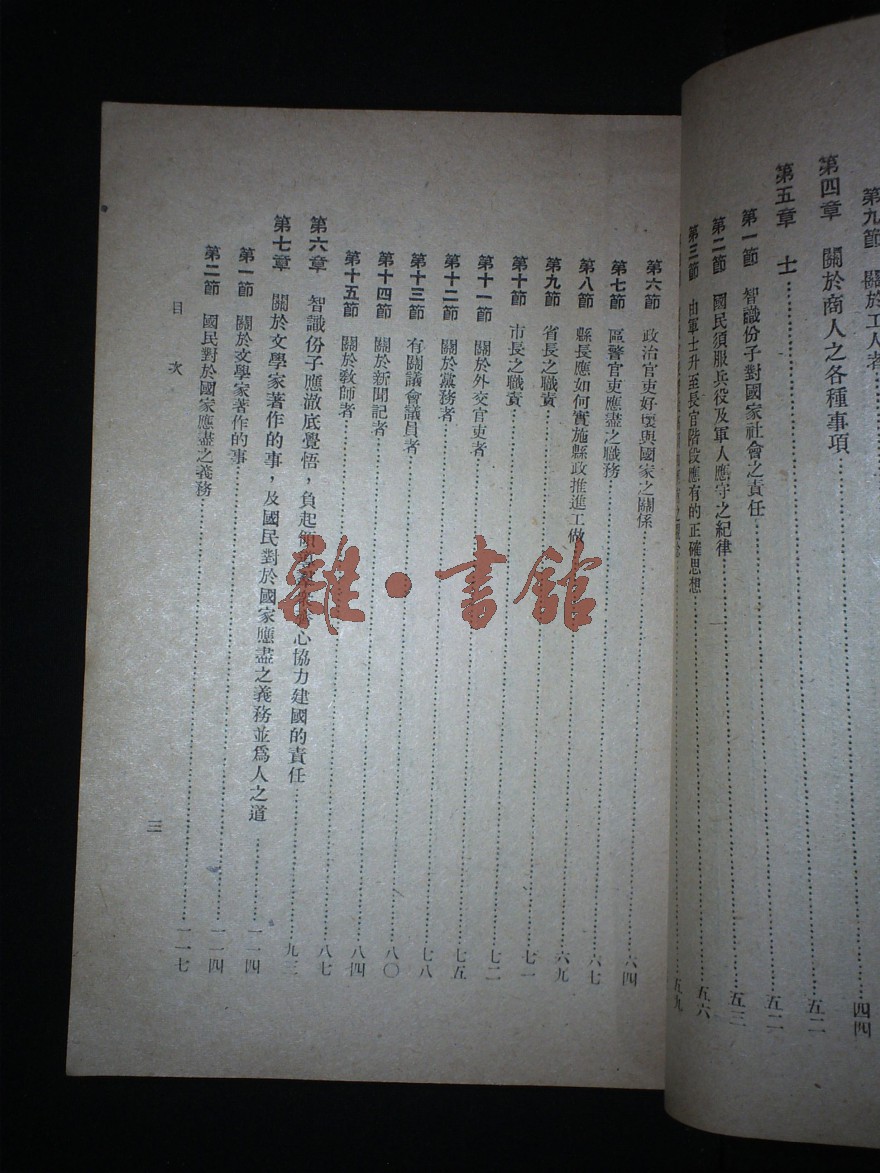 第九節　關於工人者……四四
第四章　關於商人之各種事項……五二
第五章　士……五二
第一節　智識份子對國家社會之責任……五三
第二節　國民須服兵役及軍人應守之紀律……五六
第三節　由軍士升至長官階段應有的正確思想……五九
第六節　政治官吏好壞與國家之關係……六四
第七節　區警官吏應盡之職務……六七
第八節　縣長應如何實施縣政推進工做……六九
第九節　省長之職責……七一
第十節　市長之職責……七二
第十一節　關於外交官吏者……七五
第十二節　關於黨務者……七八
第十三節　有關議會議員者……八〇
第十四節　關於新聞記者……八四
第十五節　關於教師者……八七
第六章　智識份子應澈底覺悟，負起領心協力建國的責任……九三
第七章　關於文學家著作的事，及國民對於國家應盡之義務並爲人之道……一一四
第一節　關於文學家著作的事……一一四
第二節　國民對於國家應盡之義務……一一七
目　次
三
雜·書館